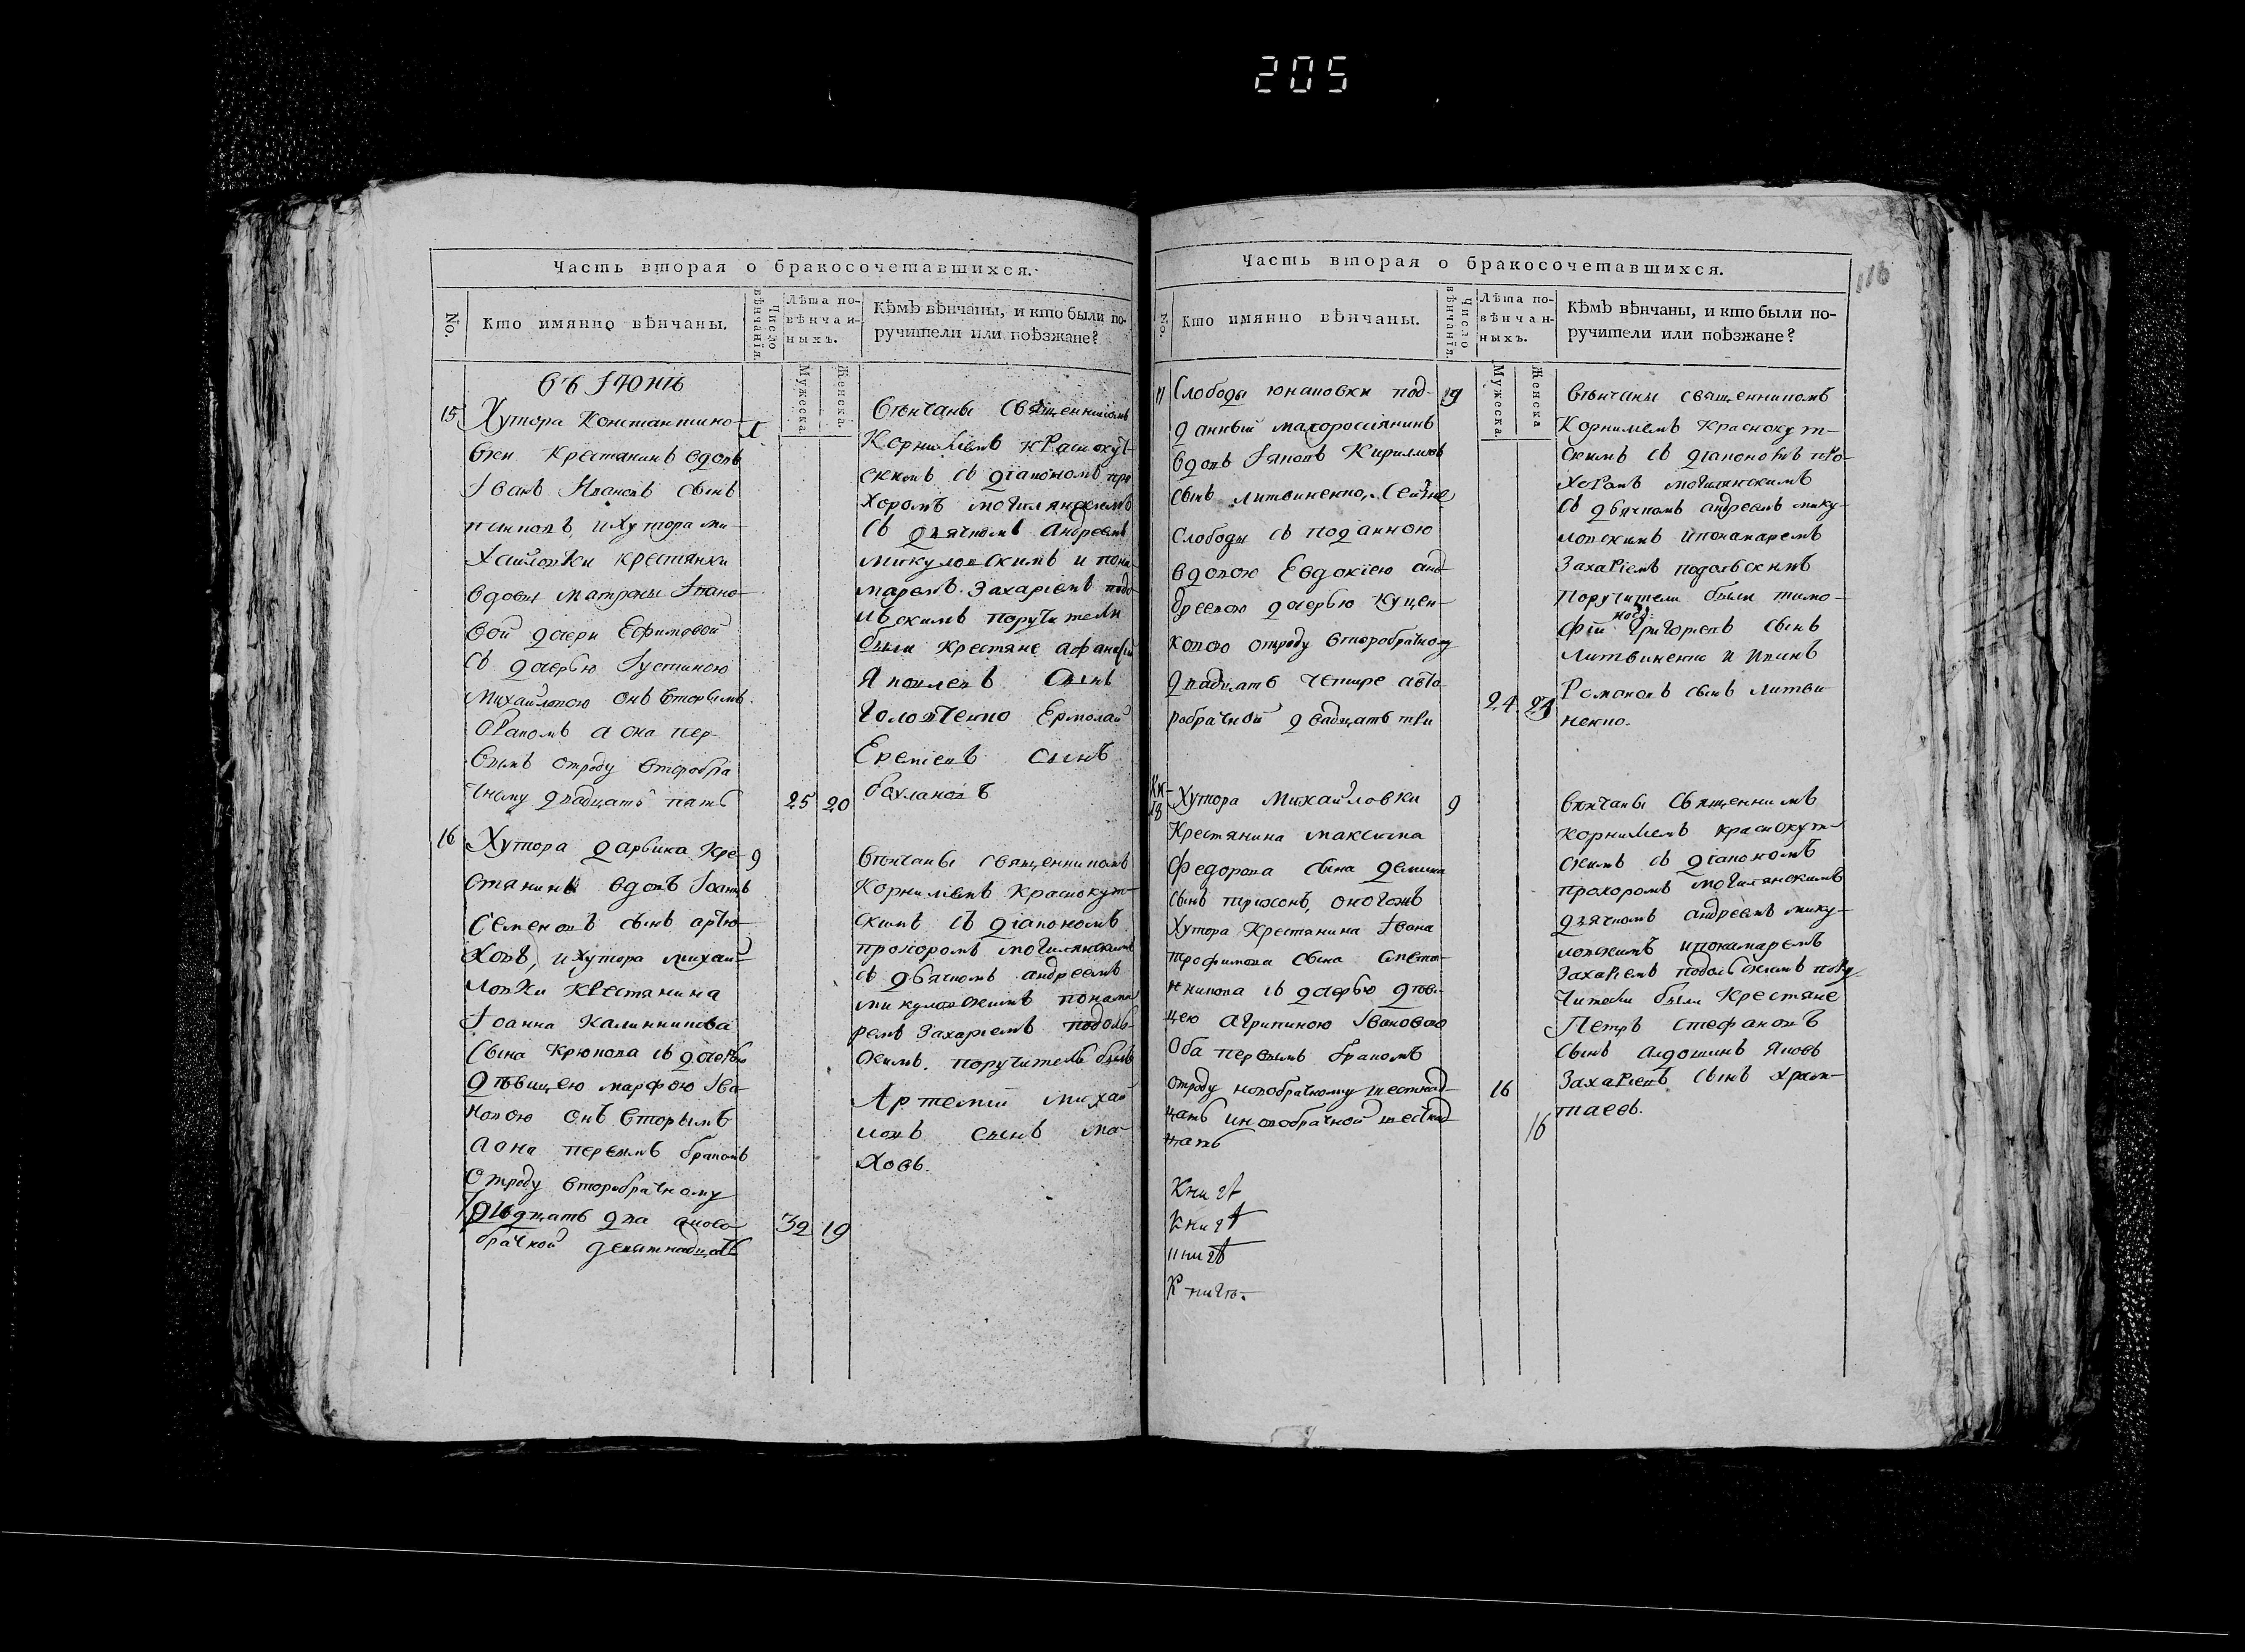 205
Часть вторая о бракосочетавшихся.
No.
Кто имянно вѣнчаны.
Число вѣнчанія.
Лѣта повѣнчанныхъ.
Мужеска.
Женска.
Кѣмъ вѣнчаны, и кто были по-
ручители или поѣзжане?
Въ Іюнѣ
15
Хутора Константино-
вки Крестянинъ вдовъ
Іванъ Ивановъ сынъ
и Хутора Ми-
хайловки крестянки
вдовы Матроны Івано-
вой дочери Ефимовой
съ дочерью Іустиною
Михайловою онъ вторымъ
бракомъ а она пер-
вымъ отроду второбра
чному двадцать пять
25 20
Вѣнчаны Священникомъ
Корнилiемъ Краснокут-
скимъ съ діакономъ про
хоромъ могилянскимъ
съ дьячкомъ Андреемъ
микуловскимъ и поно-
маремъ Захаріемъ подо-
льскимъ поручители
были Крестяне афанасій
Яковлевъ Сынъ
Головченко Ермолай
Еремiевъ сынъ
бахлановъ
16
Хутора Дарвика Кре-
9
стянинъ вдовъ Іоаннъ
Семеновъ сынъ артю-
ховъ, и хутора михай-
ловки крестянина
Іоанна Калинникова
сына Крюкова съ дочерью
дѣвицею марфою Іва-
новою онъ вторымъ
а она первымъ бракомъ
отроду второбрачному
тридцать два аново-
брачной девятнадцать
32 19
Вѣнчаны священникомъ
Корнилiемъ Краснокут-
скимъ съ діакономъ
прохоромъ могилянскимъ
съ дьячкомъ андреемъ
микуловскимъ понама
ремъ Захаріемъ подоль-
скимъ. поручитель былъ
Артемій михай
ловъ сынъ ма
ховъ.
116
Часть вторая о бракосочетавшихся.
No.
Кто имянно вѣнчаны.
Число вѣнчанія.
Лѣта повѣнчанныхъ.
Мужеска.
Женска
Кѣмъ вѣнчаны, и кто были по-
ручители или поѣзжане?
Слободы юнаковки под-
19
данный малоросіянинъ
вдовъ Іяковъ Кириловъ
сынъ литвиненко,
слободы съ поданною
вдовою Евдокіею анд
дреевою дочерью Куцен-
ковою отроду второбрачному
двадцать четыре авто
робрачной двадцать три
24 23
Вѣнчаны священникомъ
Корнилiемъ Краснокут-
скимъ съ діакономъ про-
хоромъ могилянскимъ
съ дьячкомъ андреемъ мику-
ловскимъ ипонамаремъ
Захаріемъ подольскимъ
поручители были тимо-
фій Григорiевъ сынъ
литвиненко и
Романовъ сынъ литви
ненко.
Кн-
18
Хутора Михайловки
9
Крестянина максима
федорова сына демина
сынъ тихонъ, оногожъ
Хутора Крестянина Івана
трофимова сына
съ дочерью дѣви-
цею агрипиною Івановою
Оба первымъ бракомъ
отроду новобрачному шестнад
цать иновобрачной шестнад
цать
16
16
Вѣнчаны Священникомъ
корнилiемъ краснокут-
скимъ съ діакономъ
прохоромъ могилянскимъ
дьячкомъ андреемъ мику-
ловскимъ ипонамаремъ
Захаріемъ подольскимъ пору-
чители были Крестяне
Петръ стефановъ
сынъ алдошинъ Яковъ
Захаріевъ сынъ храм-
таевъ.
Книгѣ
Книгѣ
ниигѣ
Книгѣ.